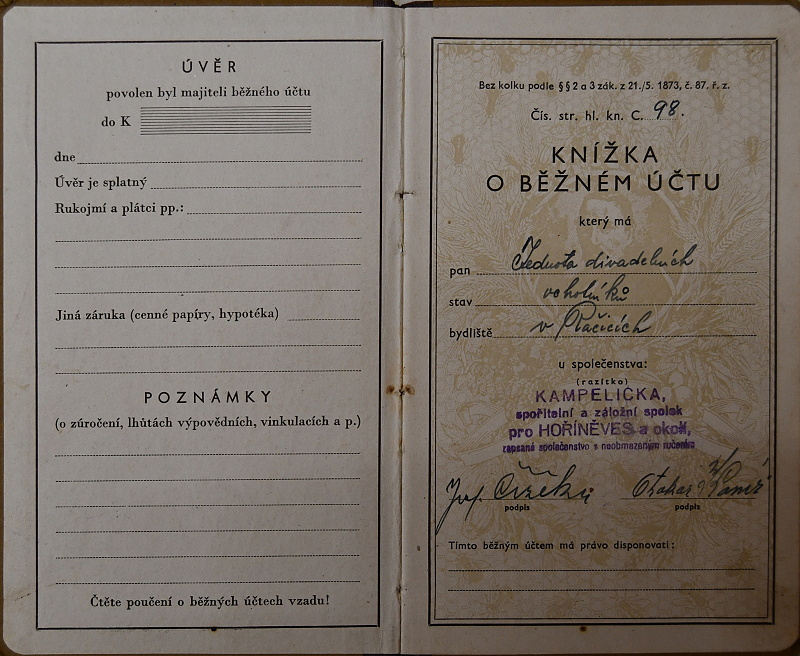 ÚVĚR
povolen byl majiteli běžného účtu
do K
dne
Úvěr je splatný
Rukojmí a plátci pp.:
Jiná záruka (cenné papíry, hypotéka)
POZNÁMKY
(o zúročení, lhůtách výpovědních, vinkulacích a p.)
Čtěte poučení o běžných účtech vzadu!
Bez kolku podle §§ 2 a 3 zák. z 21./5. 1873, č. 87. ř. z.
Čís. str. hl. kn. C. 98.
KNÍŽKA
O BĚŽNÉM ÚČTU
který má
pan Jednota divadelních
stav ochotníků
bydliště v Račicích
u společenstva:
(razítko)
KAMPELIČKA,
spořitelní a záložní spolek
pro HOŘÍNĚVES a okolí,
zapsané společenstvo s neobmezeným ručením
Jos. Čížek
Otakar
podpis podpis
Tímto běžným účtem má právo disponovati: